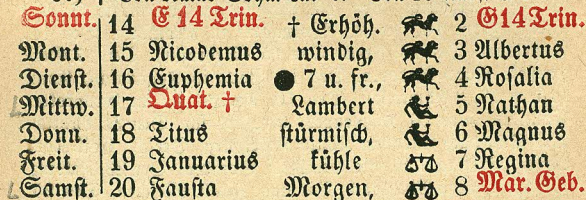 Sonnt. 14 E 14 Trin. † Erhöh. 2 G 14 Trin.
Mont. 15 Nicodemus windig, 3 Albertus
Dienst. 16 Euphemia ● 7 u. fr., 4 Rosalia
Mittw. 17 Quat. † Lambert 5 Nathan
Donn. 18 Titus stürmisch, 6 Magnus
Freit. 19 Januarius kühle 7 Regina
Samst. 20 Fausta Morgen, 8 Mar. Geb.